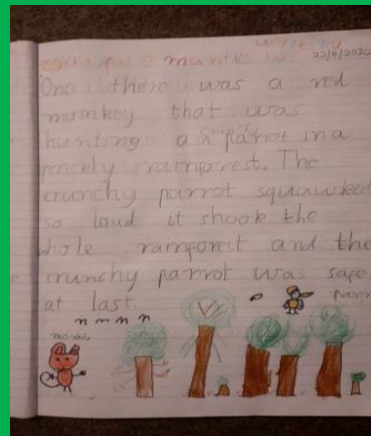 writing
22/4/2020
Once there was a red
monkey that was
hunting a crunchy parrot in a
prickly rainforest. The
crunchy parrot squawked
so loud it shook the
whole rainforest and the
crunchy parrot was safe
at last.